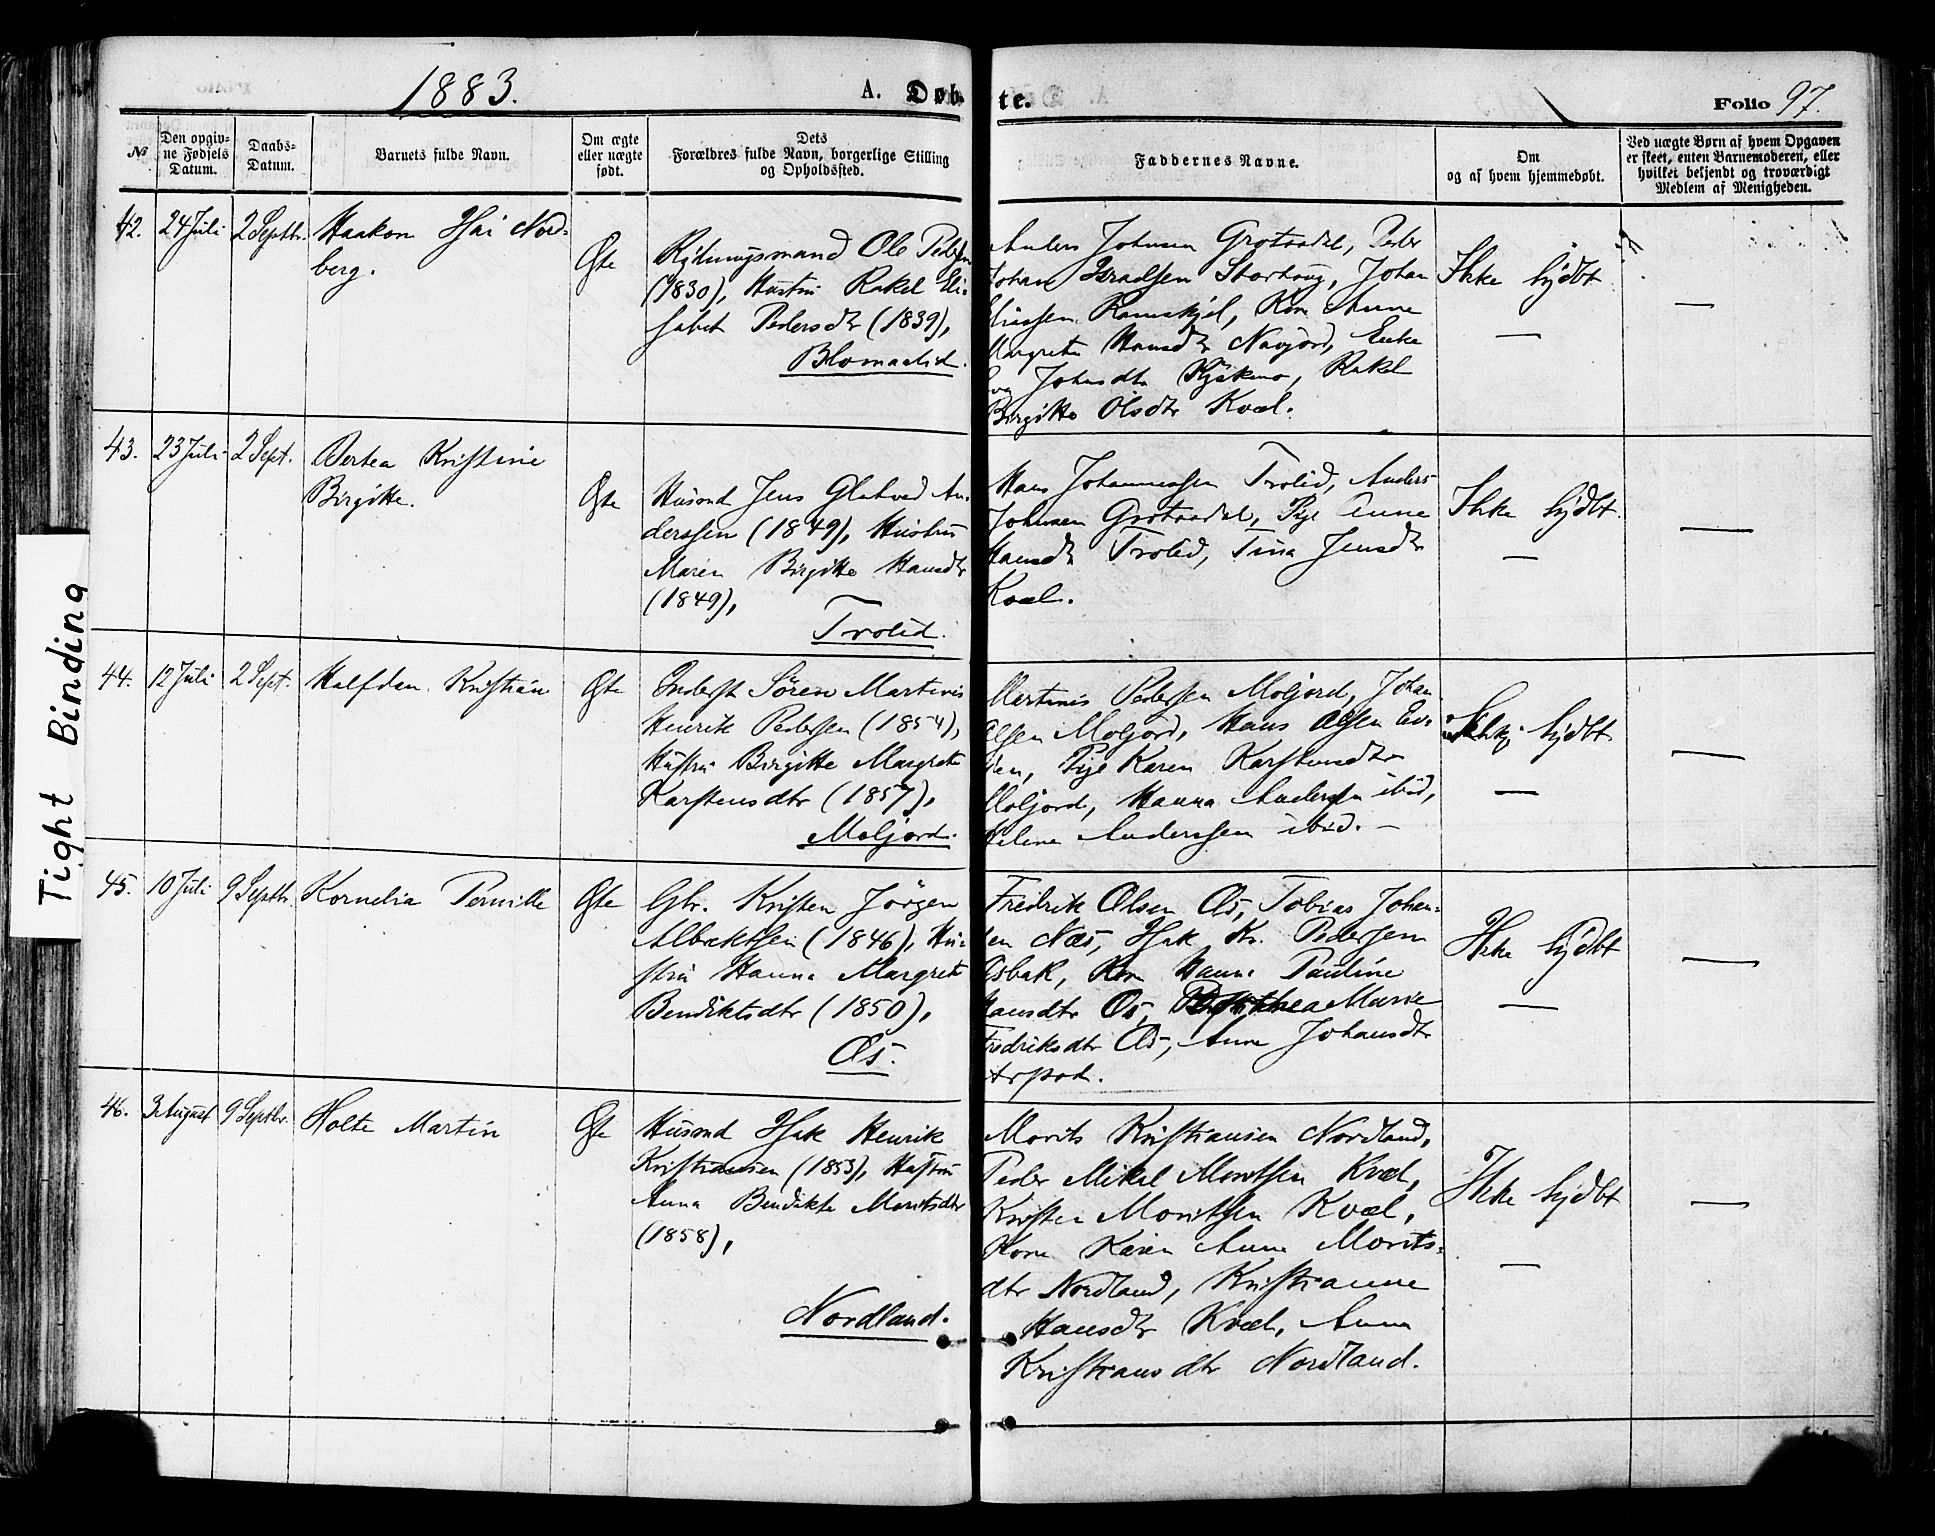 1883.
A. Døbte.
Folio 97.
№
Den opgivne Fødsels Datum.
Daabs-Datum.
Barnets fulde Navn.
Om ægte eller uægte født.
Dets Forældres fulde Navn, borgerlige Stilling og Opholdssted.
Faddernes Navne.
Om og af hvem hjemmedøbt.
Ved uægte Børn af hvem Opgaven er skeet, enten Barnemoderen, eller hvilket bekjendt og troværdigt Medlem af Menigheden.
42. 24 Juli 2 Septbr. Haakon Nord-
berg.
Ægte
Rydningsmand Ole Peders
(1830), Hustru Rakel Eli-
sabet Pedersdtr (1839),
Blomaalid.
Anders Johnsen Grotaadal, Peder
Johan Israelsen Storhaug, Johan
Eliassen Rameskjel, Kone Anne
Margrete Hansdtr Navjord, Enke
Johnsdtr Kjækmo, Rakel
Birgitte Olsdtr Kvæl.
Ikke hjdbt
—
—
43. 23 Juli 2 Sept. Bertea Kristine
Birgitte.
Ægte
Husmd Jens Glatved An-
derssen (1849), Hustru
Maren Birgitte Hansdtr
(1849),
Trolid.
Hans Johannessen Trolid, Anders
Johnsen Grotaadal, Pige Anne
Hansdtr Trolid, Tina Jensdtr
Kvæl.
Ikke hjdbt.
—
—
44. 12 Juli 2 Sept. Halfdan Kristian
Ægte
Inderst Sören Martinus
Henrik Pedersen (1854),
Hustru Birgitte Margrete
Karstensdtr (1857),
Moljord.
Martinus Pedersen Moljord, Johan
Olsen Moljord, Hans Olsen Evi-
den, Pige Karen Karstensdtr
Moljord, Hanna Anderssen ibid,
Helene Anderssen ibid. —
hjdbt
—
—
45. 10 Juli 9 Septbr. Kornelia Pernille
Ægte
Gbr. Kristen Jörgen
Albriktsen (1846), Hu-
stru Hanna Margrete
Bendiktsdtr (1850),
Æs.
Fredrik Olsen Æs, Tobias Johan-
sen Næs, Isak Kr. Pedersen
Osbak, Kone Hanna Pauline
Hansdtr Æs, Marie
Fredriksdtr Æs, Anne Johansdtr
Arstad.
Ikke hjdbt
—
—
46. 3 August 9 Septbr. Holte Martin
Ægte
Husmd Isak Henrik
Kristiansen (1853), Hustru
Anna Bendikte Moritsdtr
(1858),
Nordland.
Morits Kristiansen Nordland,
Peder Mikal Moritsen Kvæl,
Kristen Moritsen Kvæl,
Kone Karen Anne Morits-
dtr Nordland, Kristianne
Hansdtr Kvæl, Anna
Kristiansdtr Nordland.
Ikke hjdbt
—
—
Tight Binding